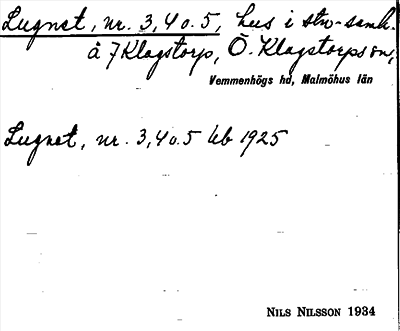 Lugnet, nr. 3, 4 o. 5, hus i stn-samh.
å 7 Klagstorp, Ö. Klagstorps sn,
Vemmenhögs hd, Malmöhus län
Lugnet, nr. 3, 4 o. 5 Jib 1925
NILS NILSSON 1934